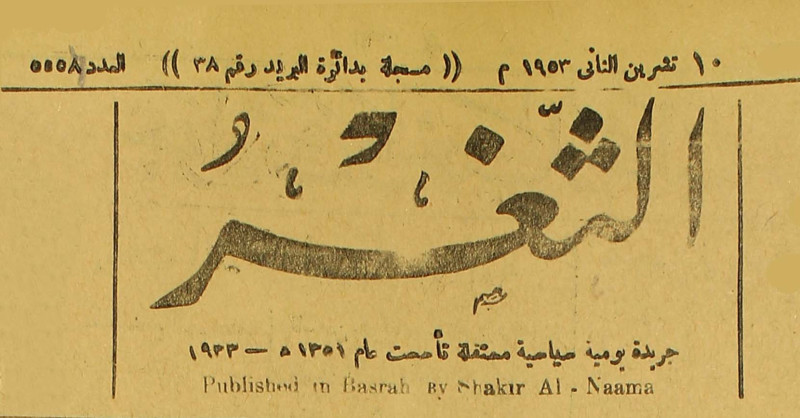 ١٠ تشرين الثاني ١٩٥٣ م (( مسجلة بدائرة البريد رقم ٣٨ )) العدد ٥٥٥٨
الثَّغْرُ
جريدة يومية سياسية مستقلة تأسست عام ١٣٥١ ه — ١٩٣٣
Published in Basrah By Shakir Al - Naama